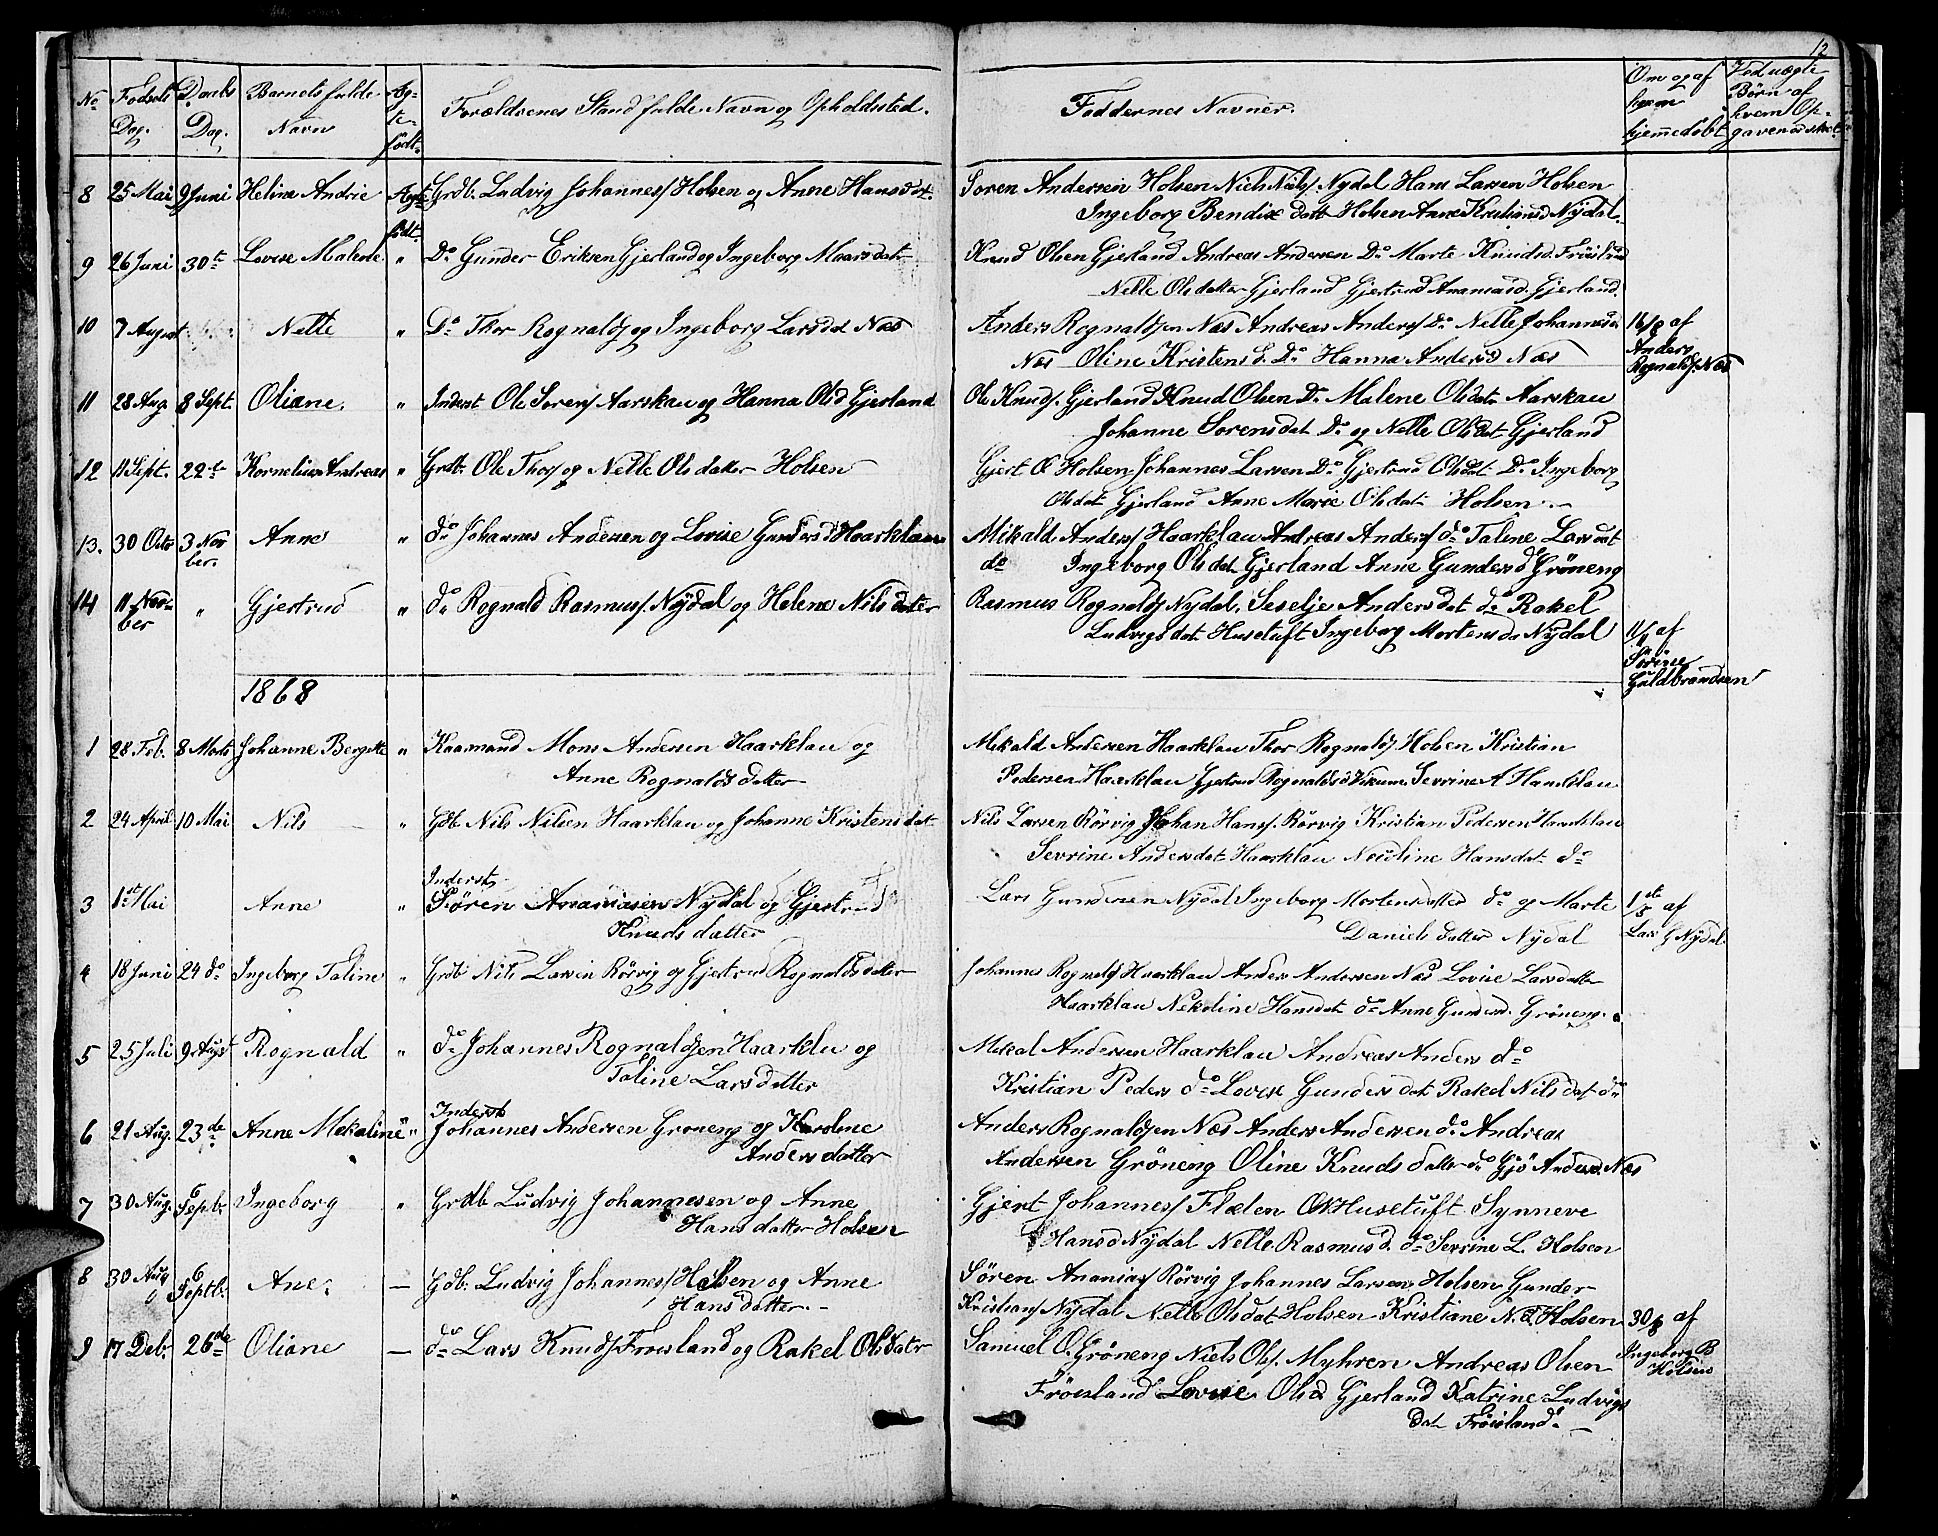 12
No Fødsels Dag. Daabs Dag. Barnets fulde Navn Ægte født. Forældrenes Stand fulde Navn og Opholdssted. Faddernes Navner. Om og af hvem hjemmedøbt Ved uægte Børn af hvem Opgaven
8 25 Mai 9 Juni Heline Andrie Ægte født. Grdb. Ludvig Johannes/ Holsen og Anne Hansdat. Soren Andersen Holsen Niels Niels/. Nydal Hans Larsen Holsen
Ingeborg Bendix datt Holsen Anne Kristiansd Nydal.
9 26 Juni 30te Lovise Malene " Do Gunder Eriksen Gjerland og Ingeborg Maarsdatt Knud Olsen Gjerland Andreas Andersen Do Marte Knudsd. Fröisland
Nelle Olsdatter Gjerland Gjertrud Ananiasd. Gjerland.
10 7 August Nelle " Do Thor Rognalds/ og Ingeborg Larsdat Næs Anders Rognaldsen Næs Andreas Anders/ Do Nelle Johannesd. 16/8 af
Næs Oline Kristensd. Do Hanna Andersd Næs Anders
Rognalds/ Næs
11 28 Aug. 8 Sept. Oliane. " Inderst Ole Sorens/ Aarskau og Hanna Olsd Gjerland Ole Knuds/. Gjerland Knud Olsen Do Malene Olsdat Aarskau
Johanne Sorensdat Do og Nelle Olsdat Gjerland
12 11 Sept. 22de Kornelius Andreas " Grdb Ole Thors/ og Nelle Olsdatter Holsen Gjert O Holsen Johannes Larsen Do Gjertrud Olsdat Do Ingeborg
Olsdat Gjerland Anne Marie Olsdat Holsen.
13. 30 Octo 3 November. Anne " do Johannes Andersen og Lovise Gundersd Haarklau Mikald Anders/ Haarklau Andreas Anders/ do Taline Larsdat
do Ingeborg Olsdat Gjerland Anne Gundersd Gröneng
14 11 November " Gjertrud " do Rognald Rasmus/. Nydal og Helene Nilsdatter Rasmus Rognalds/ Nydal. Seselje Andersdat do Rakel
Ludvigsdat Husetuft Ingeborg Mortensda Nydal 11/11 af
Sörine
Guldbrandsen
1868
1 28 Feb. 8 Marts Johanne Bergitte " Kaarmand Mons Andersen Haarklau og Mekald Andersen Haarklau Thor Rognalds/ Holsen Kristian
Anne Rognaldsdatter Pedersen Haarklau Gjertrud Rognaldsd Sevrine A Haarklau
2 24 April 10 Mai Nils " Gdb Nils Nilsen Haarklau og Johanne Kristensdat Nils Larsen Rörvig Johan Hans/. Rörvig Kristian Pedersen Haarklau
Sevrine Andersdat Haarklau Hansdat do
3 1st Mai Anne " Inderst
Sören Ananiasen Nydal og Gjertrud Lars Gundersen Nydal Ingeborg Mortensdatter do og Marte 1ste/5 af
Knudsdatter Daniels datter Nydal Lars G Nydal
4 18 Juni 24 do Ingeborg Taline " Grdb Nils Larsen Rörvig og Gjertrud Rognaldsdatter Johannes Rognalds/ Haarklau Anders Andersen Næs Lovise Larsdatter
Haarklau Nekoline Hansdat do Anne Gundersd. Gröneng.
5 25 Juli 9 August Rognald " do Johannes Rognaldsen Haarklau og Mekal Andersen Haarklau Andreas Anders do
Taline Larsdatter Kristian Peders do Lovise Gundersdat Rakel Nilsdat do
6 21 Aug. 23de Anne Mekaline " Inderst
Johannes Andersen Gröneng og Karoline Anders Rognaldsen Næs Anders Andersen do Andreas
Andersdatter Andersen Gröneng Oline Knudsdatter do Gjö Andersd. Næs
7 30 Aug. 6 Septb. Ingeborg " Grdb Ludvig Johannesen og Anne Gjert Johannes/ Flælen O K Husetuft Synneve
Hansdatter Holsen Hansd Nydal Nelle Rasmusd. do Sevrine L. Holsen
8 30 Aug 6 Septb. Ane. — Gdb. Ludvig Johannes/ Holsen og Anne Sören Ananias/ Rörvig Johannes Larsen Holsen Gunder
Hansdatter.- Kristians/ Nydal Nelle Olsdat Holsen Kristiane N.d. Holsen 30/8 af
Ingeborg B
Holsen
9 17 Deb. 26de Oliane — do Lars Knuds/ Froisland og Rakel Olsdatr Samuel O. Gröneng Niels Ols/. Myhren Andreas Olsen
Fröisland Lovise Olsd Gjerland Katrine Ludvigs
dat Fröisland.